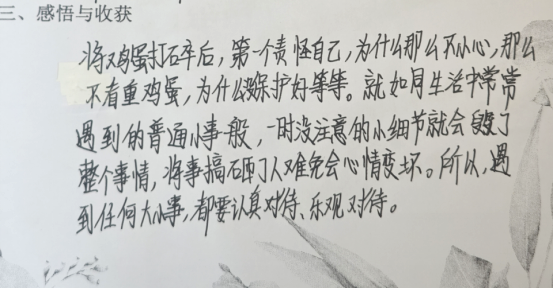 三、感悟与收获
将鸡蛋打碎后，第一个责怪自己，为什么那么不小心，那么
不看重鸡蛋，为什么没保护好等等。就如同生活中常常
遇到的普通小事一般，一时没注意的小细节就会毁了
整个事情，将事搞砸了人难免会心情变坏。所以，遇
到任何大小事，都要认真对待、乐观对待。